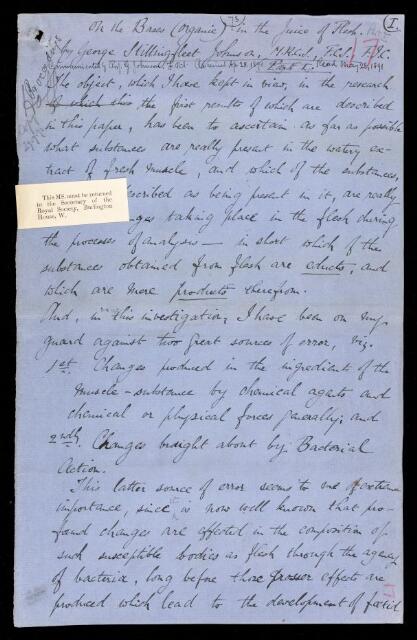 On the Bases (organic) in the Juice of Flesh.
I.
by George Stillingfleet Johnson, M.R.C.S., F.C.S., F.I.C.
Part I. Read May 28, 1891
The object, which I have kept in view, in the research
the first results of which are described
in this paper, has been to ascertain as far as possible
what substances are really present in the watery ex-
tract of fresh muscle, and which of the substances,
described as being present in it, are really
This MS. must be returned
to the Secretary of the
Royal Society, Burlington
House, W.
taking place in the flesh during
the processes of analysis — in short which of the
substances obtained from flesh are educts, and
which are mere products therefrom.
And, in this investigation, I have been on my
guard against two great sources of error, viz.
1st. Changes produced in the ingredient of the
muscle-substance by chemical agents and
chemical or physical forces generally; and
2ndly. Changes brought about by Bacterial
Action.
This latter source of error seems to me of extreme
importance, since it is now well known that pro-
found changes are effected in the composition of
such susceptible bodies as flesh through the agency
of bacteria, long before those grosser effects are
produced which lead to the development of foetid